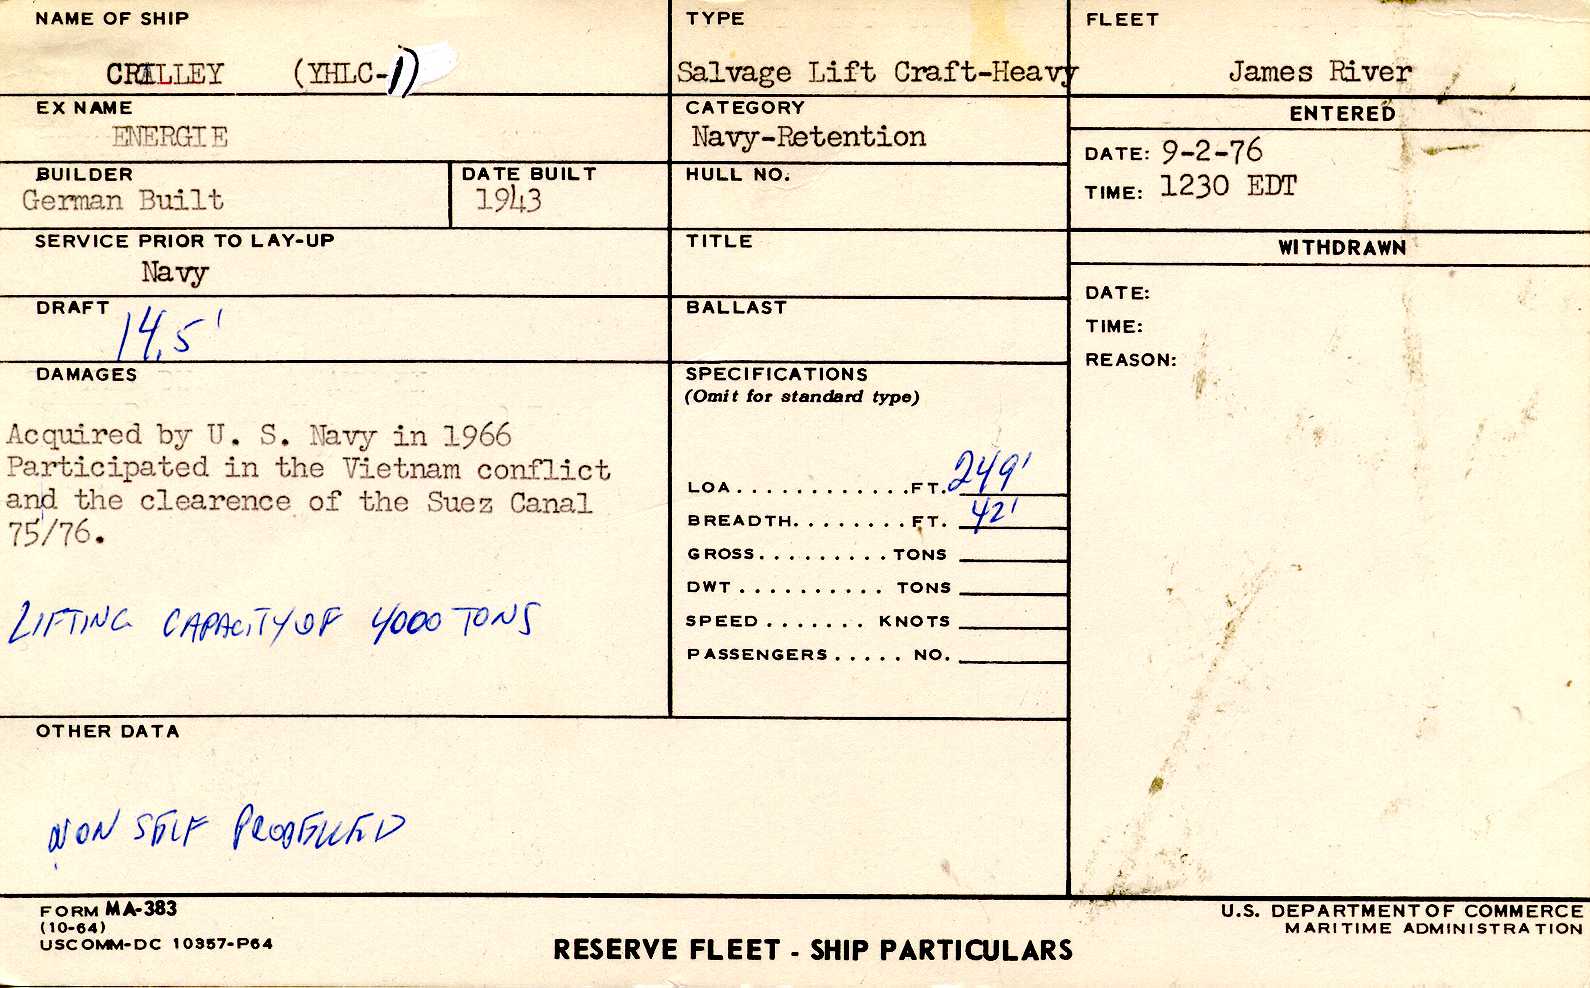 NAME OF SHIP
CRILLEY (YHLC-1)
TYPE
Salvage Lift Craft-Heavy
FLEET
James River
EX NAME
ENERGIE
CATEGORY
Navy-Retention
ENTERED
DATE: 9-2-76
TIME: 1230 EDT
BUILDER
German Built
DATE BUILT
1943
HULL NO.
SERVICE PRIOR TO LAY-UP
Navy
TITLE
WITHDRAWN
DATE:
TIME:
REASON:
DRAFT
14.5'
BALLAST
DAMAGES
Acquired by U. S. Navy in 1966
Participated in the Vietnam conflict
and the clearence of the Suez Canal
75/76.
LIFTING CAPACITY OF 4000 TONS
SPECIFICATIONS
(Omit for standard type)
LOA............FT. 249'
BREADTH........FT. 42'
GROSS.........TONS
DWT.......... TONS
SPEED....... KNOTS
PASSENGERS..... NO.
OTHER DATA
NON SELF PROPELLED
FORM MA-383
(10-64)
USCOMM-DC 10357-P64
RESERVE FLEET - SHIP PARTICULARS
U.S. DEPARTMENT OF COMMERCE
MARITIME ADMINISTRATION